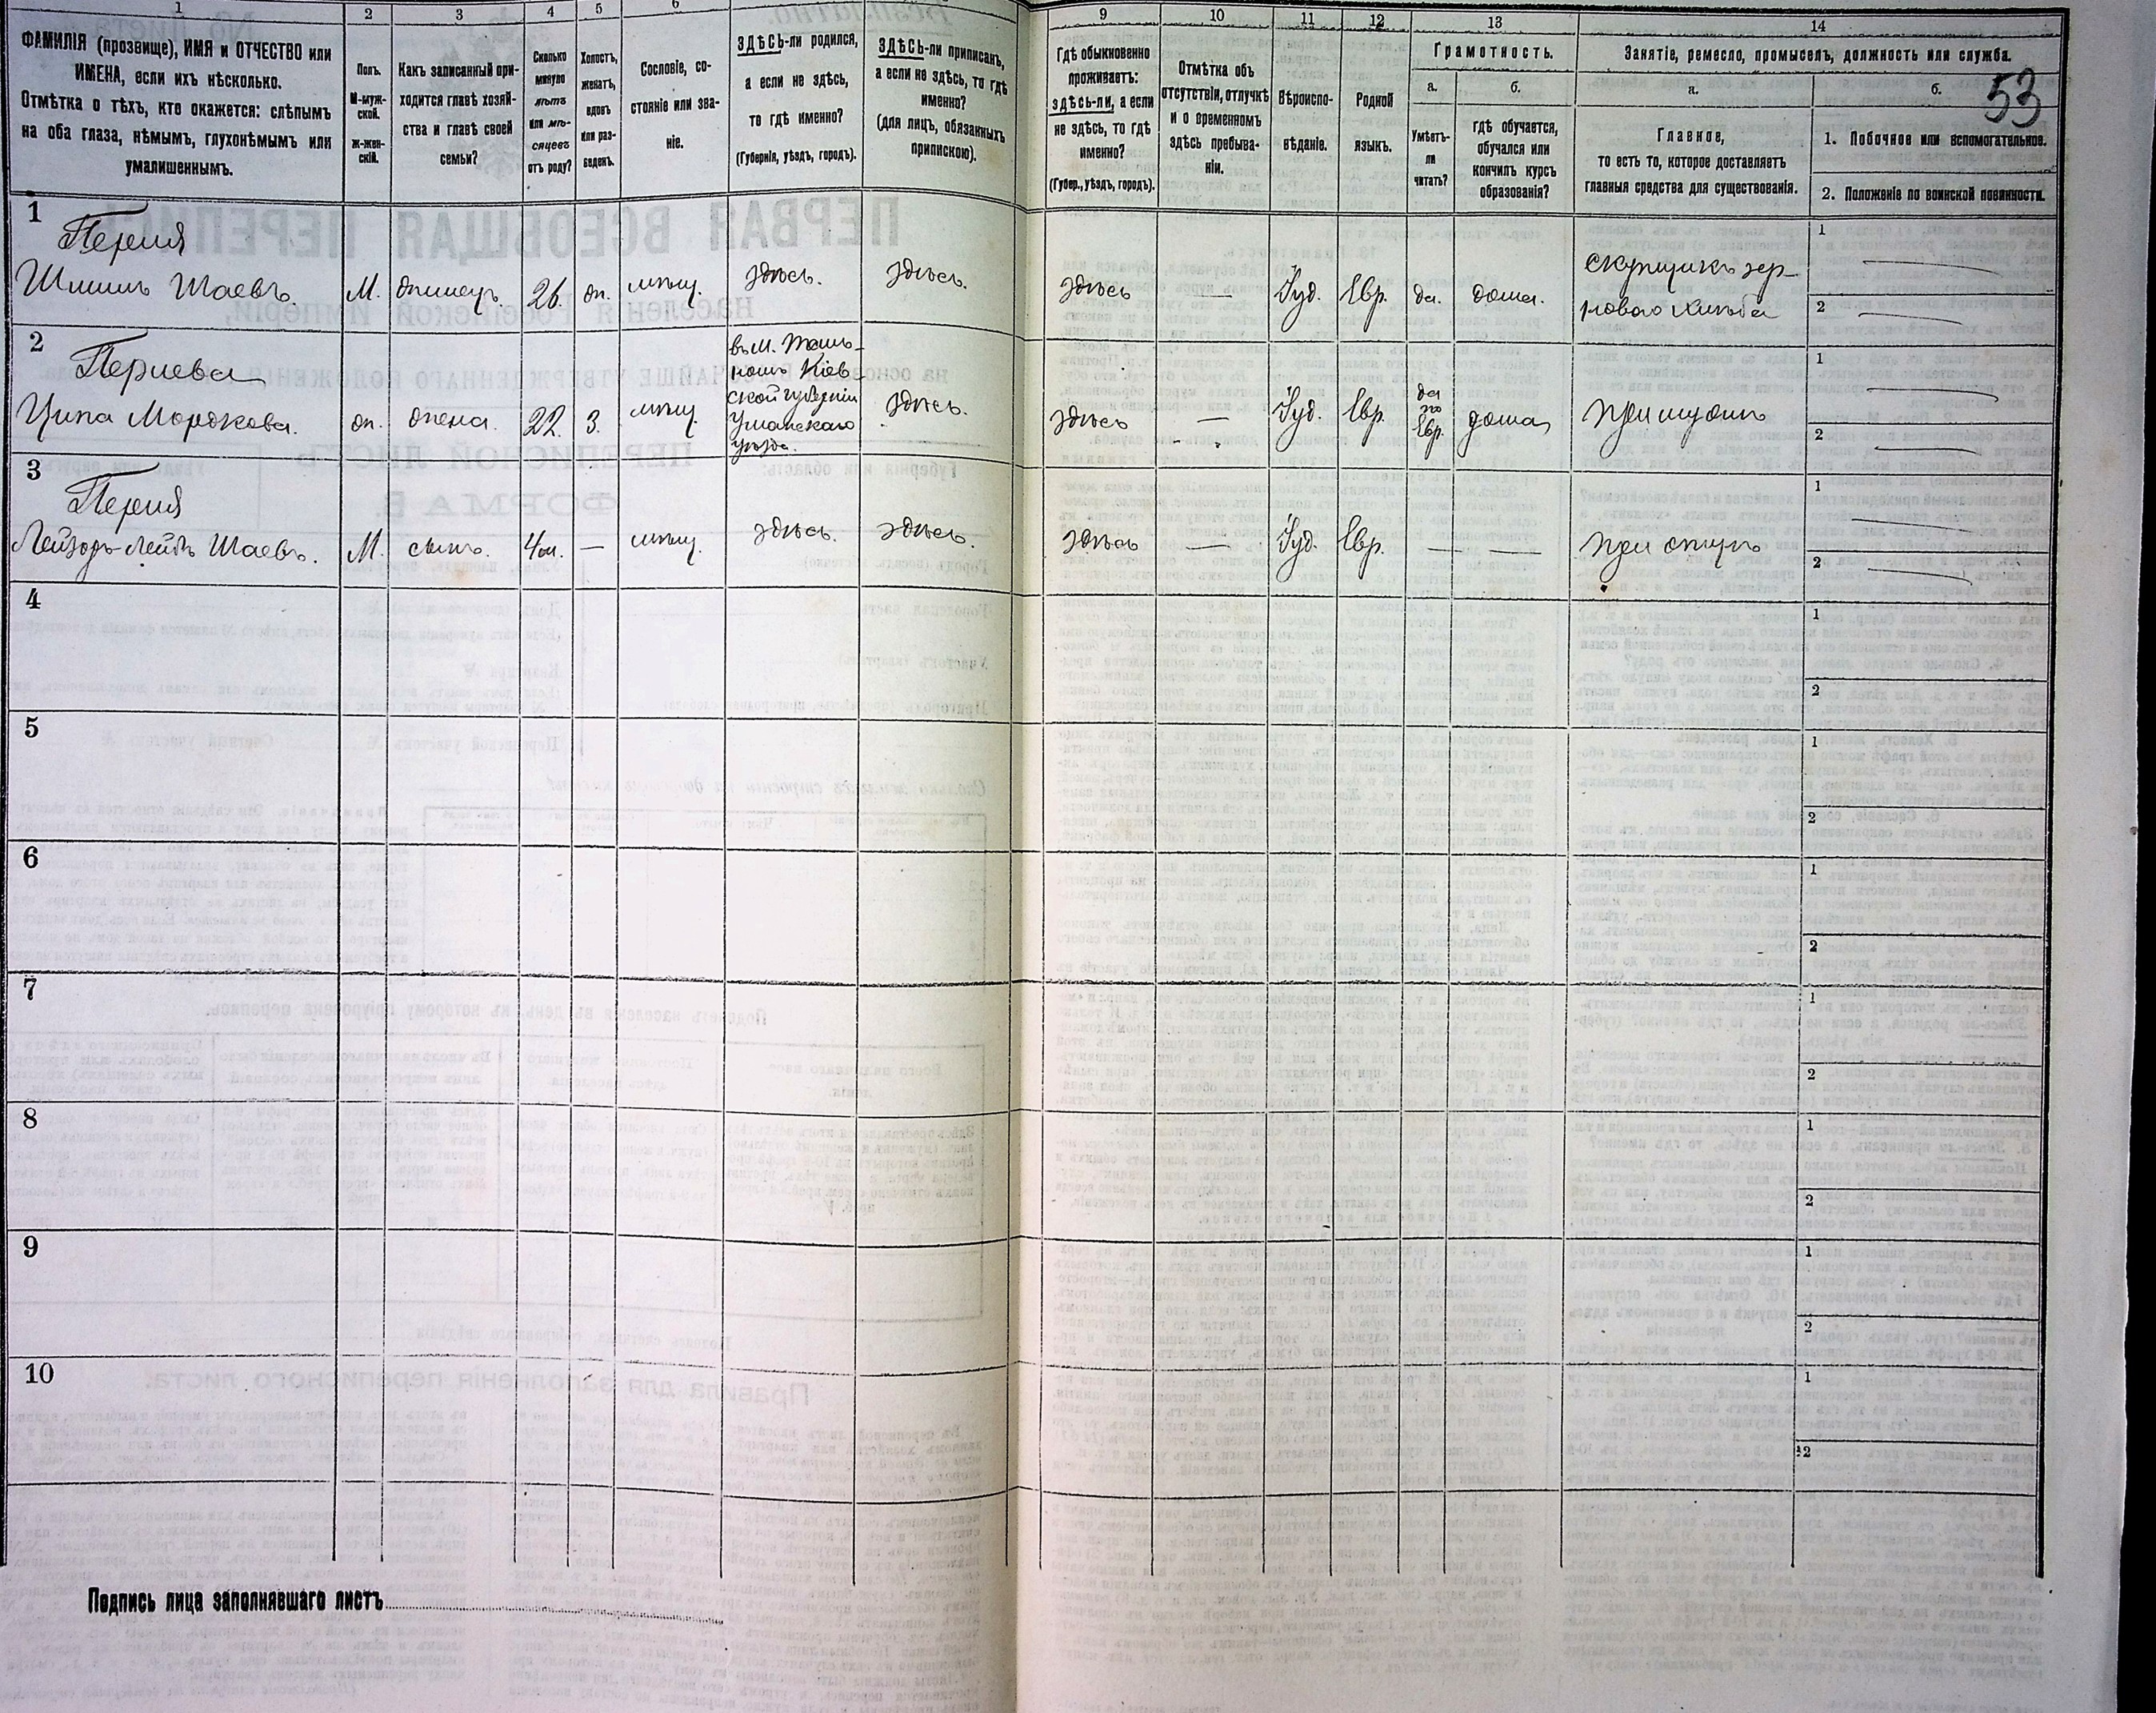 1
2
3
4
5
6
9
10
11
12
13
14
53
ФАМИЛІЯ (прозвище), ИМЯ и ОТЧЕСТВО или
ИМЕНА, если ихъ нѣсколько.
Отмѣтка о тѣхъ, кто окажется: слѣпымъ
на оба глаза, нѣмымъ, глухонѣмымъ или
умалишеннымъ.
Полъ.
М-муж-
ской.
Ж-жен-
скій.
Какъ записанный при-
ходится главѣ хозяй-
ства и главѣ своей
семьи?
Сколько
минуло
лѣтъ
или мѣ-
сяцевъ
отъ роду?
Холостъ,
женатъ,
вдовъ
или раз-
веденъ.
Сословіе, со-
стояніе или зва-
ніе.
ЗДѢСЬ-ли родился,
а если не здѣсь,
то гдѣ именно?
(Губернія, уѣздъ, городъ).
ЗДѢСЬ-ли приписанъ,
а если не здѣсь, то гдѣ
именно?
(для лицъ, обязанныхъ
припискою).
Гдѣ обыкновенно
проживаетъ:
здѣсь-ли, а если
не здѣсь, то гдѣ
именно?
(Губер., уѣздъ, городъ).
Отмѣтка объ
отсутствіи, отлучкѣ
и о временномъ
здѣсь пребыва-
ніи.
Вѣроиспо-
вѣданіе.
Родной
языкъ.
Грамотность.
а.
Умѣетъ-
ли
читать?
б.
гдѣ обучается,
обучался или
кончилъ курсъ
образованія?
Занятіе, ремесло, промыселъ, должность или служба.
а.
Главное,
то есть то, которое доставляетъ
главныя средства для существованія.
б.
1. Побочное или вспомогательное.
2. Положеніе по воинской повинности.
1
Перия
Шмиль Шаевъ. М. жилец. 26. жн. мѣщ. здѣсь. здѣсь. здѣсь — Іуд. Евр. да. дома.
скупщикъ зер-
нового хлѣба
1 —
2 —
2
Периева
Ципа Мордкова. ж. жена. 22. З. мѣщ.
въ м. Таль-
номъ Кіев-
ской губерніи
Уманскаго
уѣзда.
здѣсь. здѣсь — Іуд. Евр.
да
по
Евр.
дома при мужѣ
1 —
2 —
3
Перия
Лейзоръ-Лейбъ Шаевъ. М. сынъ. 4м. — мѣщ. здѣсь. здѣсь. здѣсь — Іуд. Евр. — — при отцѣ
1 —
2 —
4
1
2
5
1
2
6
1
2
7
1
2
8
1
2
9
1
2
10
1
2
Подпись лица заполнявшаго листъ